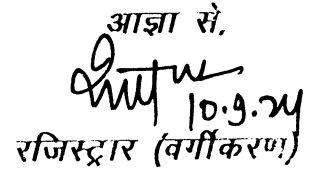 आज्ञा से,
10.9.24
रजिस्ट्रार (वर्गीकरण)